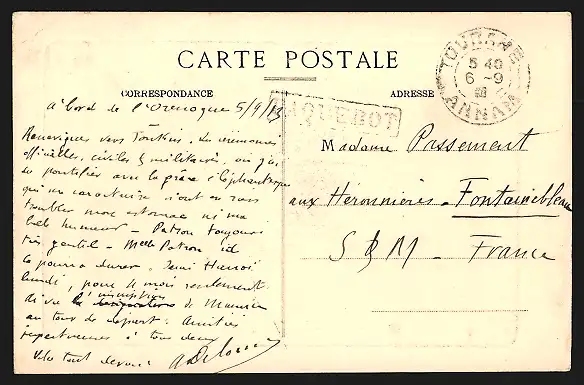 CARTE POSTALE
CORRESPONDANCE
ADRESSE
TOURANE
5 40
6 -9
ANNAM
PAQUEBOT
à bord de l'Orenoque 5/9/
Renavigues vers Tonkin. Les cérémonies
officielles, civiles & militaires, où j'ai
pu pontifier avec la grâce éléphantesque
qui me caractérise n'ont en rien
troubler mon estomac ni ma
belle humeur - Patron toujours
très gentil - Melle Patron id
lundi, pour 4 mois seulement.
l'inscription
de Maurice
au tour de départ. Amitiés
respectueuses à tous deux
Votre tout dévoué
Madame Possement
aux Héronnières - Fontainebleau
S & M - France